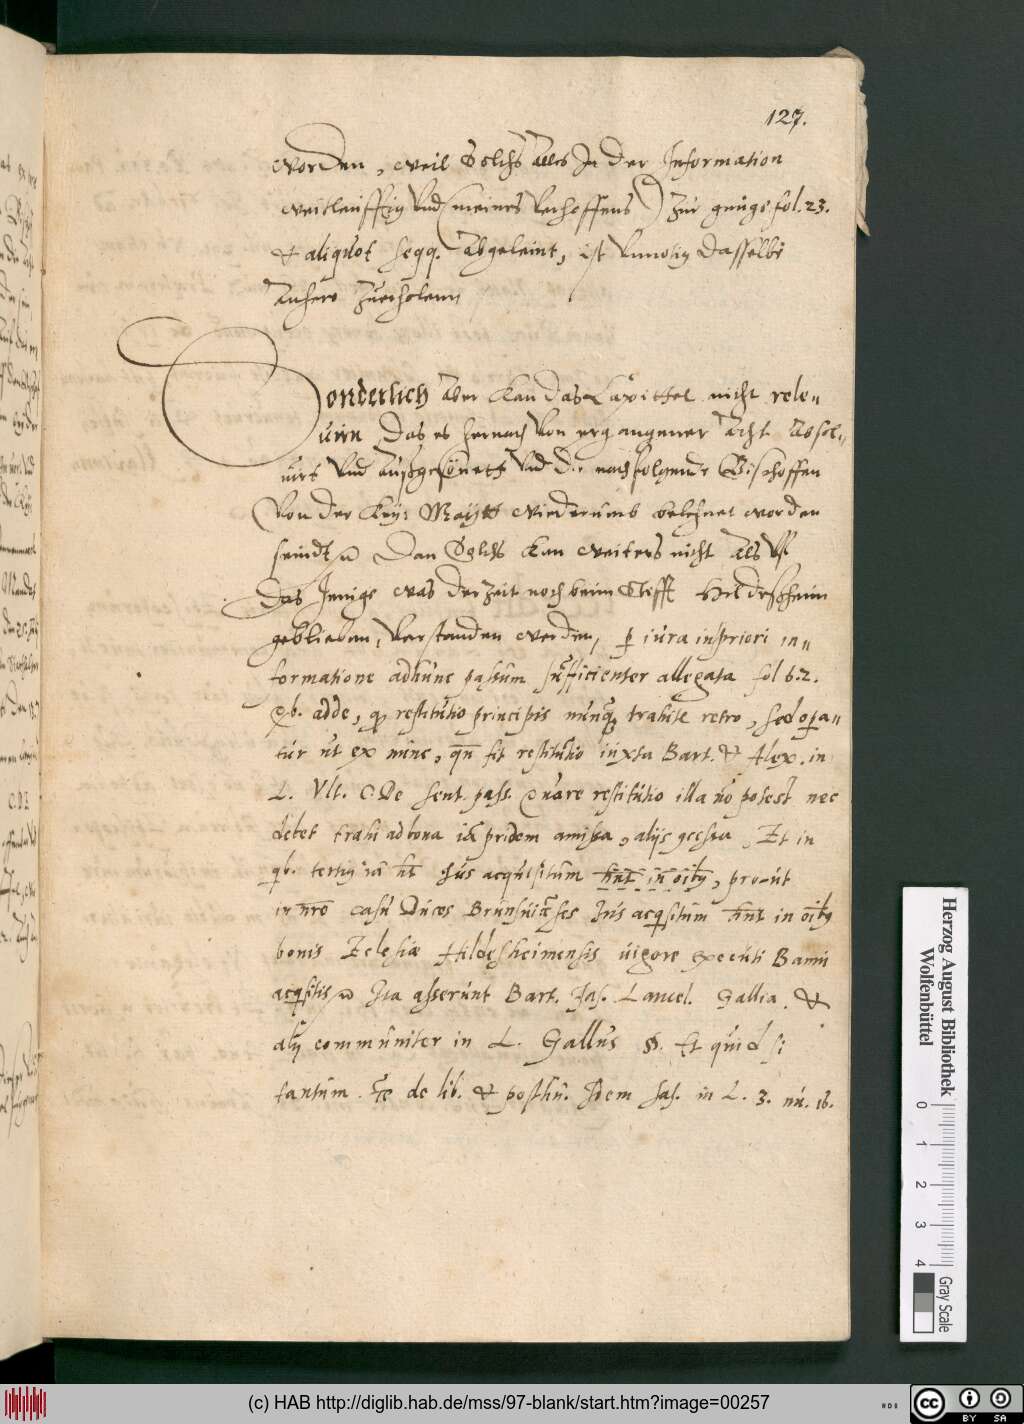 127.
worden, weil Solchs alles In der Information
weitleuffig vnd (meines verhoffens) zur gnüge fol. 23.
& aliquot seqq. abgeleint, ist vnnotig dasselbe
anhero zuerholenn
Sonderlich aber kan das Capittel nicht rele-
uirn Das es hernach von ergangener Acht absol-
uirt vnd außgesönett vnd die nachfolgende Bischoffen
von der Key: Maytt wiederumb belehnet worden
seindt Dan Solchs kan weiters nicht als vf
das Jenige was der zeit noch beim Stifft Hildesheim
geblieben, verstanden werden, p iura in priori in-
formatione adhunc passum sufficienter allegata fol 62.
Qb. adde, q restitutio principis nunq trahite retro, sed opa-
tur ut ex nunc, qn fit restitutio iuxta Bart. & Alex. in
L. Vlt. C. De sent. pass. Quare restitutio illa no potest nec
debet trahi ad bona ia pridem amissa, alijs
Et in
qb. tertij ia ht Jus acquisitum hnt in oiby, pro-ut
in nro casu Duces Brunsuicēses Jus acqsitum hnt in oiby
bonis Eclesiæ Hildesheimensis uigore executi Banni
acqsitis Ita asserunt Bart. Jas. Lancel. Gallia. &
alij communiter in L. Gallus §. Et quid si
tantum ff de lib. & posthu. Idem Jas. in L. 3. nu. 16.
Herzog August Bibliothek
Wolfenbüttel
0 1 2 3 4
Gray Scale
(c) HAB http://diglib.hab.de/mss/97-blank/start.htm?image=00257
cc BY SA